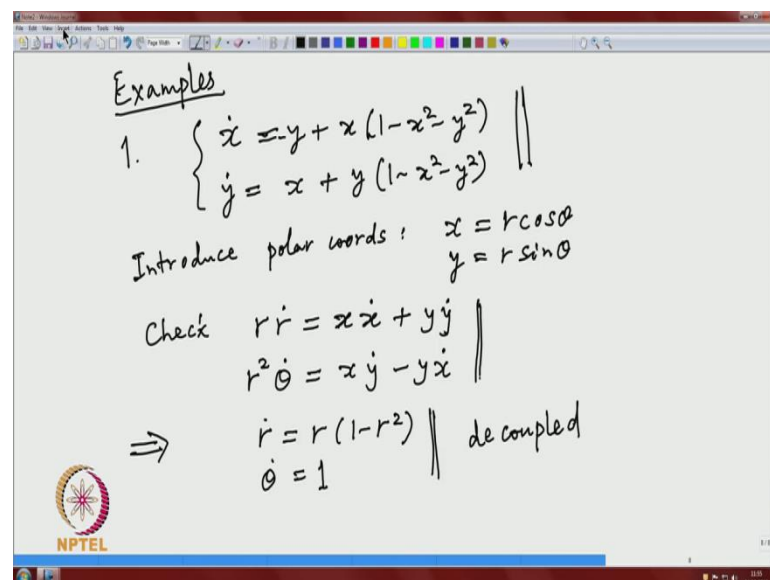 Note2 - Windows Journal
File Edit View Insert Actions Tools Help
Page Width
B I
Examples
1. { ẋ = -y + x (1-x²-y²)
ẏ = x + y (1-x²-y²)
Introduce polar coords : x = r cosθ
y = r sinθ
Check r ṙ = x ẋ + y ẏ
r² θ̇ = x ẏ - y ẋ
⇒ ṙ = r (1-r²) || decoupled
θ̇ = 1
NPTEL